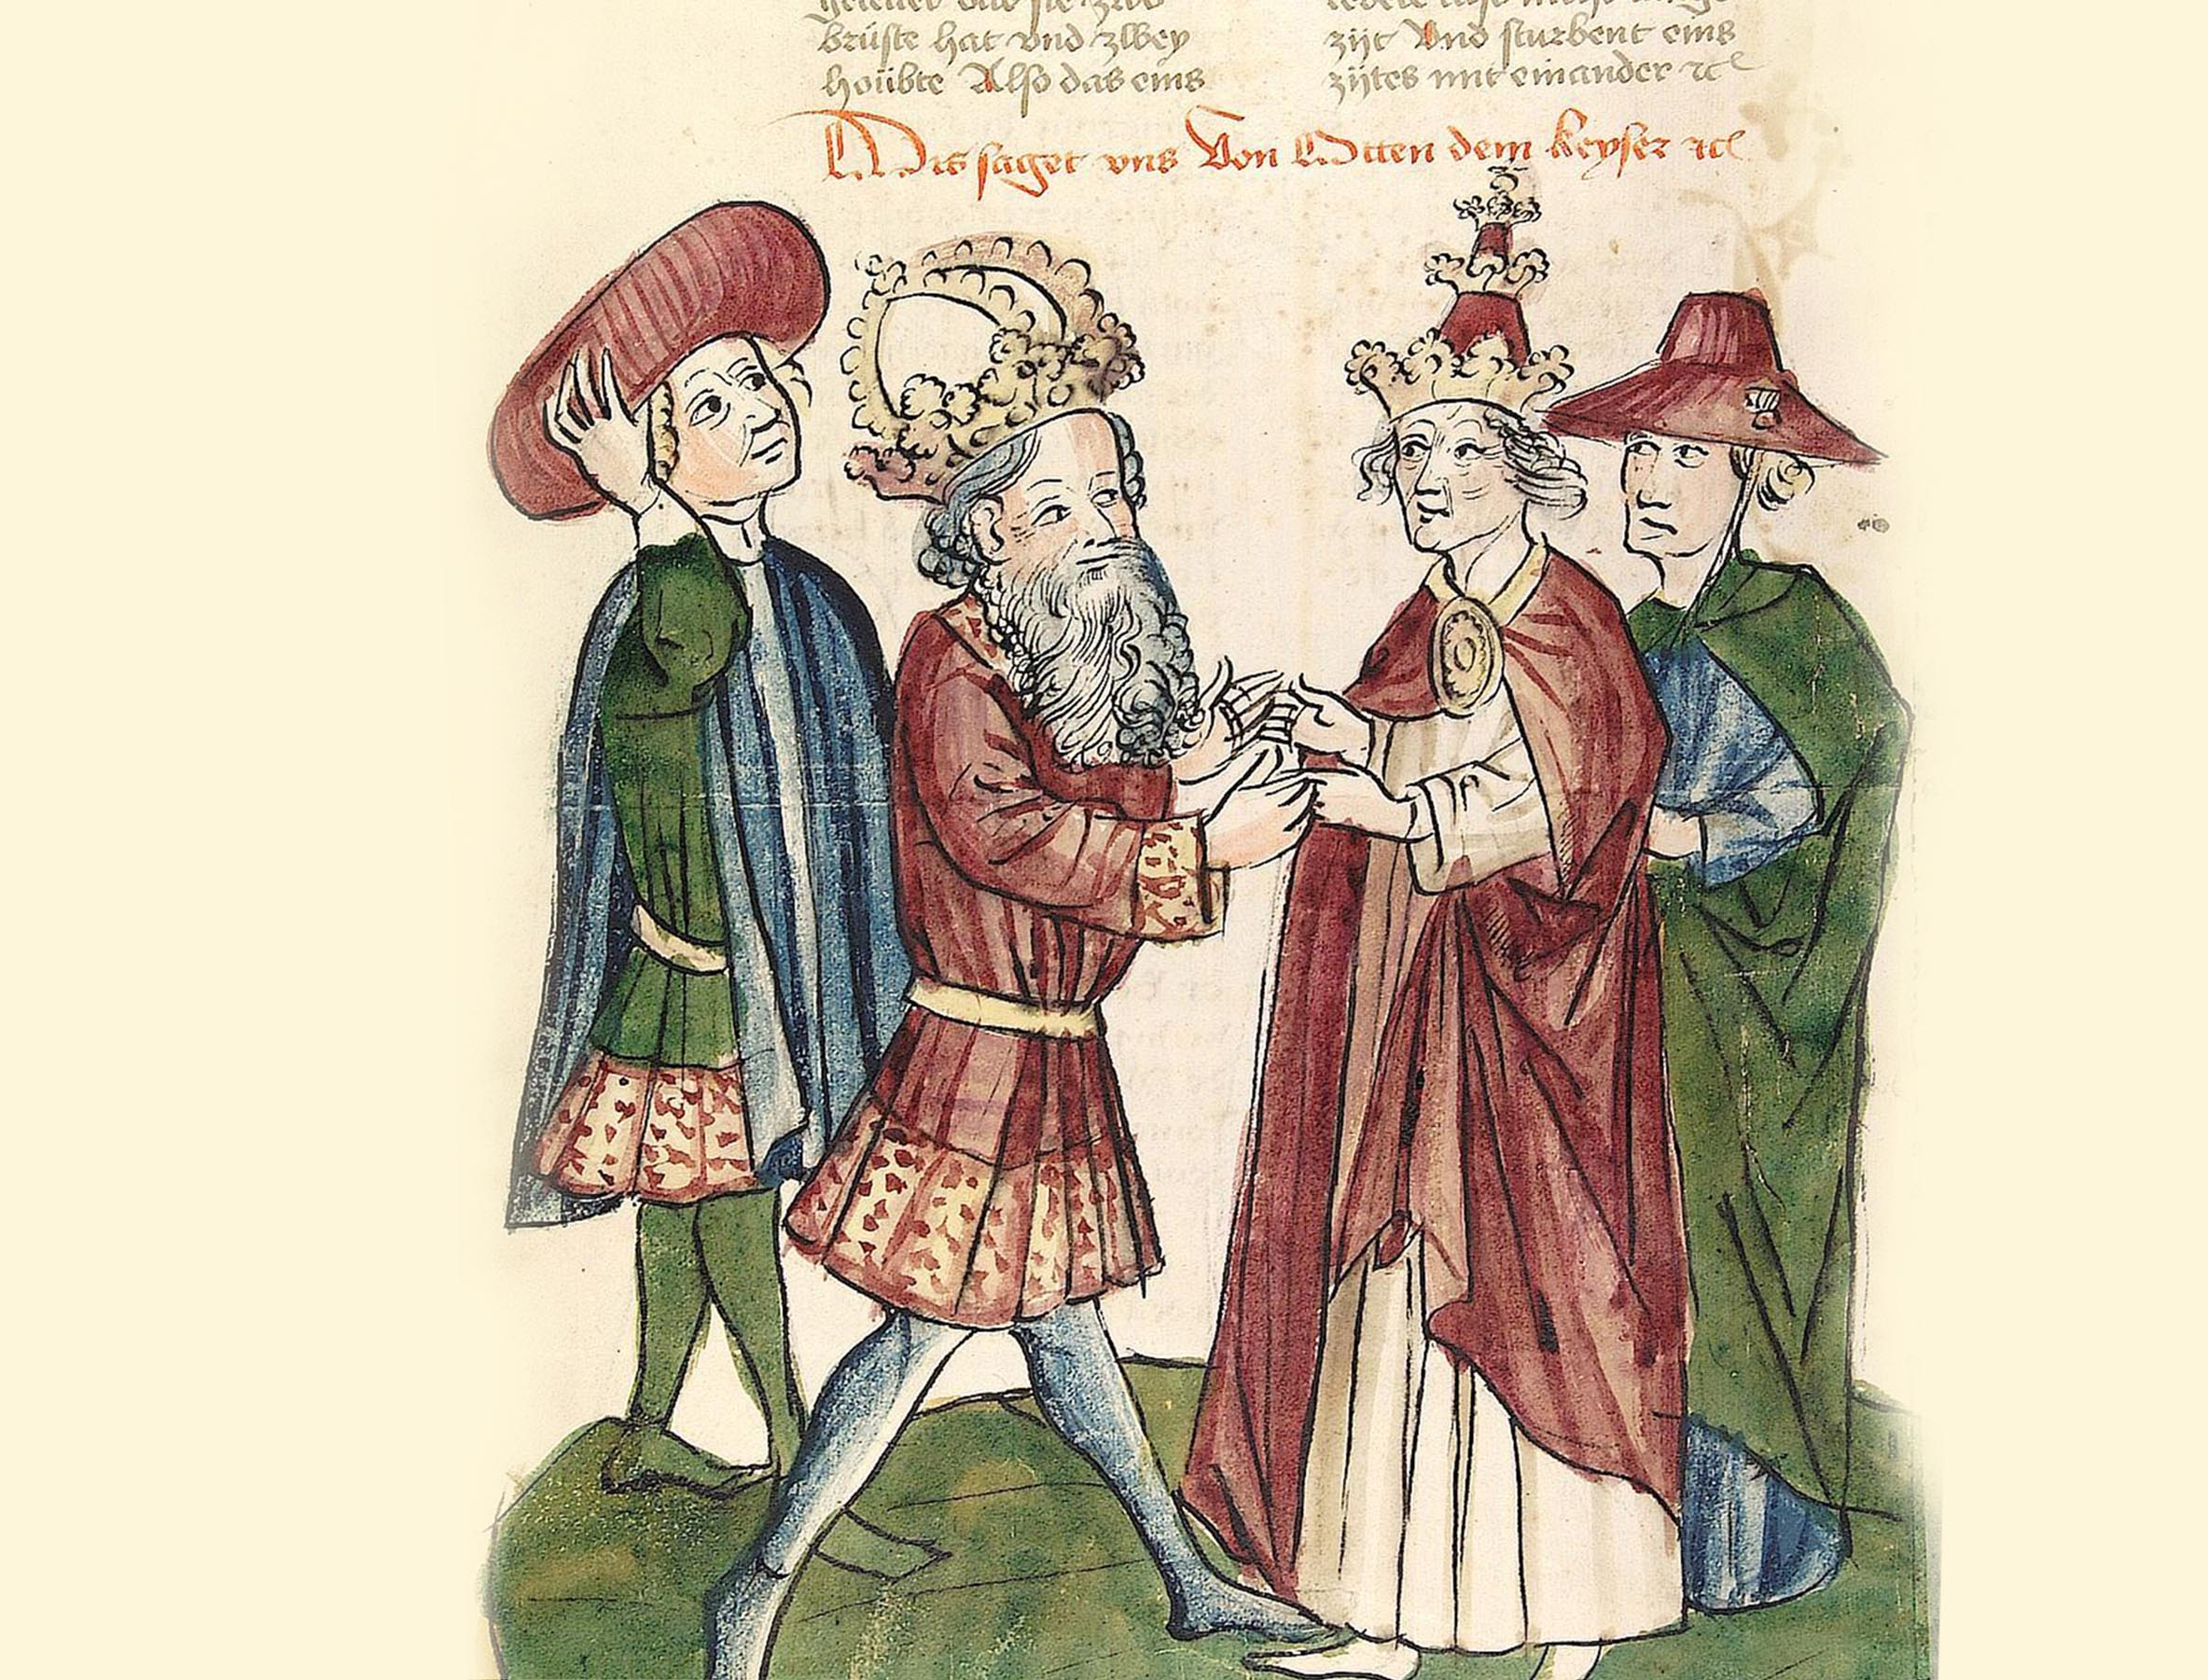 brüste hat vnd zwey
houbte Also das eins
zijt Vnd sturbent eins
zijtes mit einander ꝛc
Dis saget vns Von Otten dem keyser ꝛc